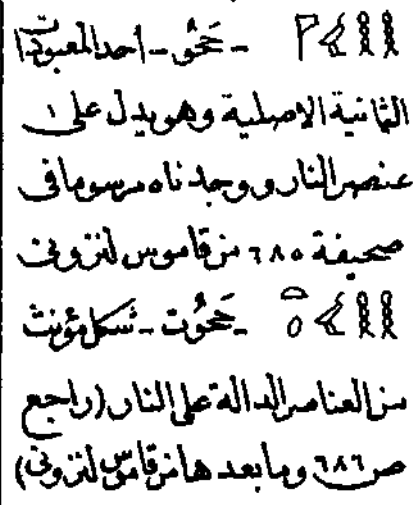 𓎛𓎛𓀁𓊹 - حَحُو - احد المعبودات
الثمانية الاصلية وهو يدل على
عنصر النار ووجدناه مرسوما فى
صحيفة ٦٨٥ من قاموس لنزونى
- حَحُوت - شكل مؤنث
من العناصر الدالة على النار (راجع
ص ٦٨٦ وما بعدها من قاموس لنزونى)